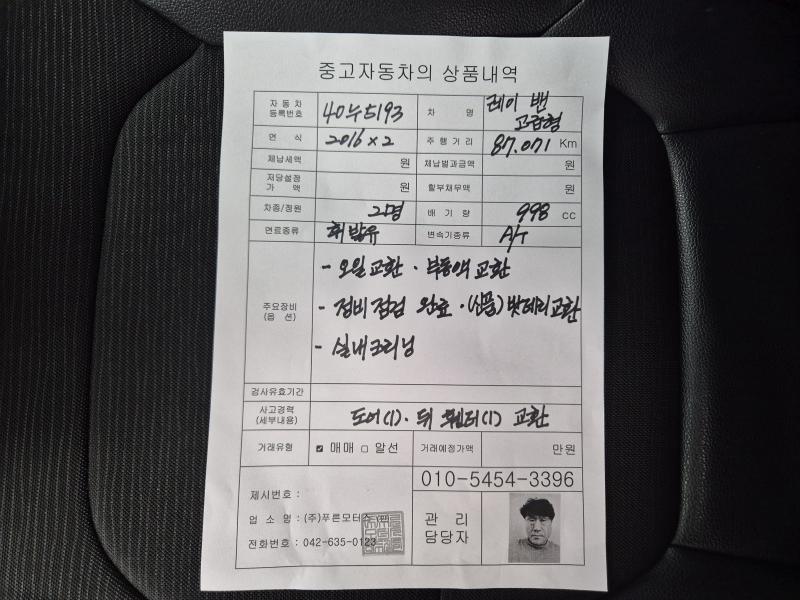 중고자동차의 상품내역
자 동 차
등록번호
40누5193
차 명
레이 밴
고급형
연 식
2016 x 2
주 행 거 리
87.071 Km
체납세액
원
체납벌과금액
원
저당설정
가 액
원
할부채무액
원
차종/정원
2명
배 기 량
998 cc
연료종류
휘발유
변속기종류
A/T
주요장비
(옵 션)
- 오일교환 · 부동액 교환
- 정비점검 완료 · (신품) 밧데리교환
- 실내크리닝
검사유효기간
사고경력
(세부내용)
도어(1). 뒤 휀더(1) 교환
거래유형
☑ 매매 □ 알선
거래예정가액
만원
010-5454-3396
제시번호 :
업 소 명 : (주)푸른모터스
전화번호 : 042-635-0123
관 리
담당자